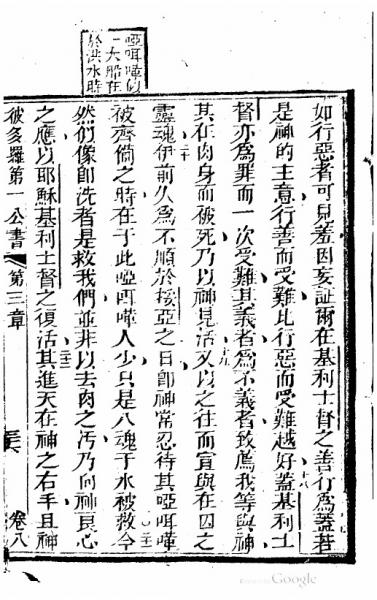 啞咡嘩即
一大船在
於洪水時
如行惡者可見羞因妄証爾在基利士督之善行為蓋若
是神的主意行善而受難比行惡而受難越好蓋基利士
督亦為罪而一次受難其義者為不義者致薦我等與神
其在肉身而被死乃以神見活又以之往而宣與在囚之
靈魂伊前久為不順於挼亞之日即神常忍待其啞咡嘩
被齊備之時在于此啞咡嘩人少只是八魂于水被救今
然們像即洗者是救我們並非以去肉之汚乃向神良心
之應以耶穌基利士督之復活其進天在神之右手且神
彼多羅第一公書 第三章 卷八
Google